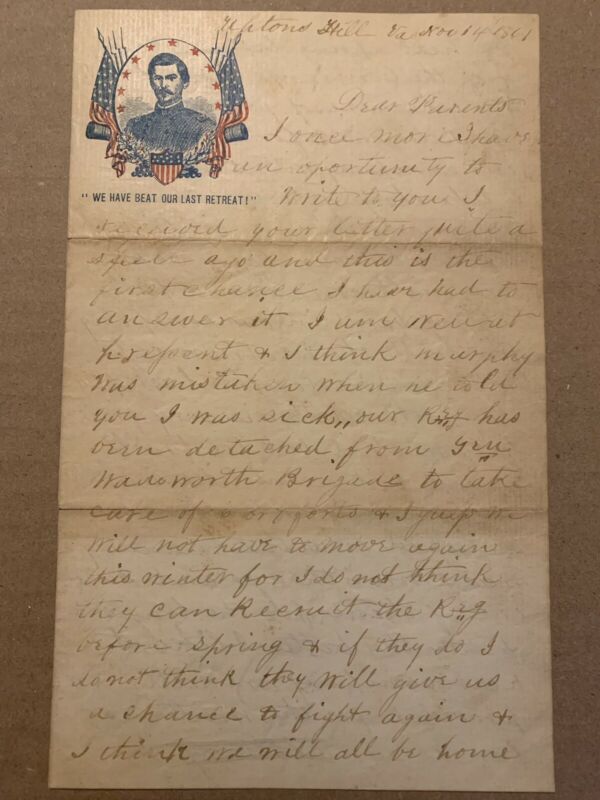 Uptons Hill Va Nov 14 1861
Dear Parents
I once more I have
an oportunity to
Write to you I
received your letter quite a
spell ago and this is the
first chance I hear had to
answer it I am well at
prefsent & I think murphy
was mistaken when he told
you I was sick,, our Reg has
been detached from Gen
Wadsworth Brigade to take
care of forts & I guefs we
will not have to move again
this winter for I do not think
they can Recruit the Reg
before spring & if they do I
do not think they will give us
a chance to fight again &
I think we will all be home
"WE HAVE BEAT OUR LAST RETREAT!"